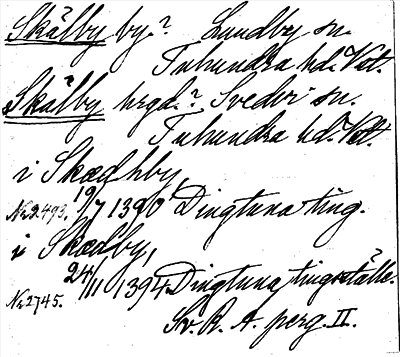 Skälby by.? Lundby sn.
Tuhundra hd. Vstl.
Skälby hrgd.? Svedvi sn.
Tuhundra hd. Vstl.
i Skædhby,
№ 2.493, 19/7 1390 Dingtuna ting.
i Skædby,
24/11 1394 Dingtuna tingsställe.
№ 2745.
Sv. R. A. perg. II.